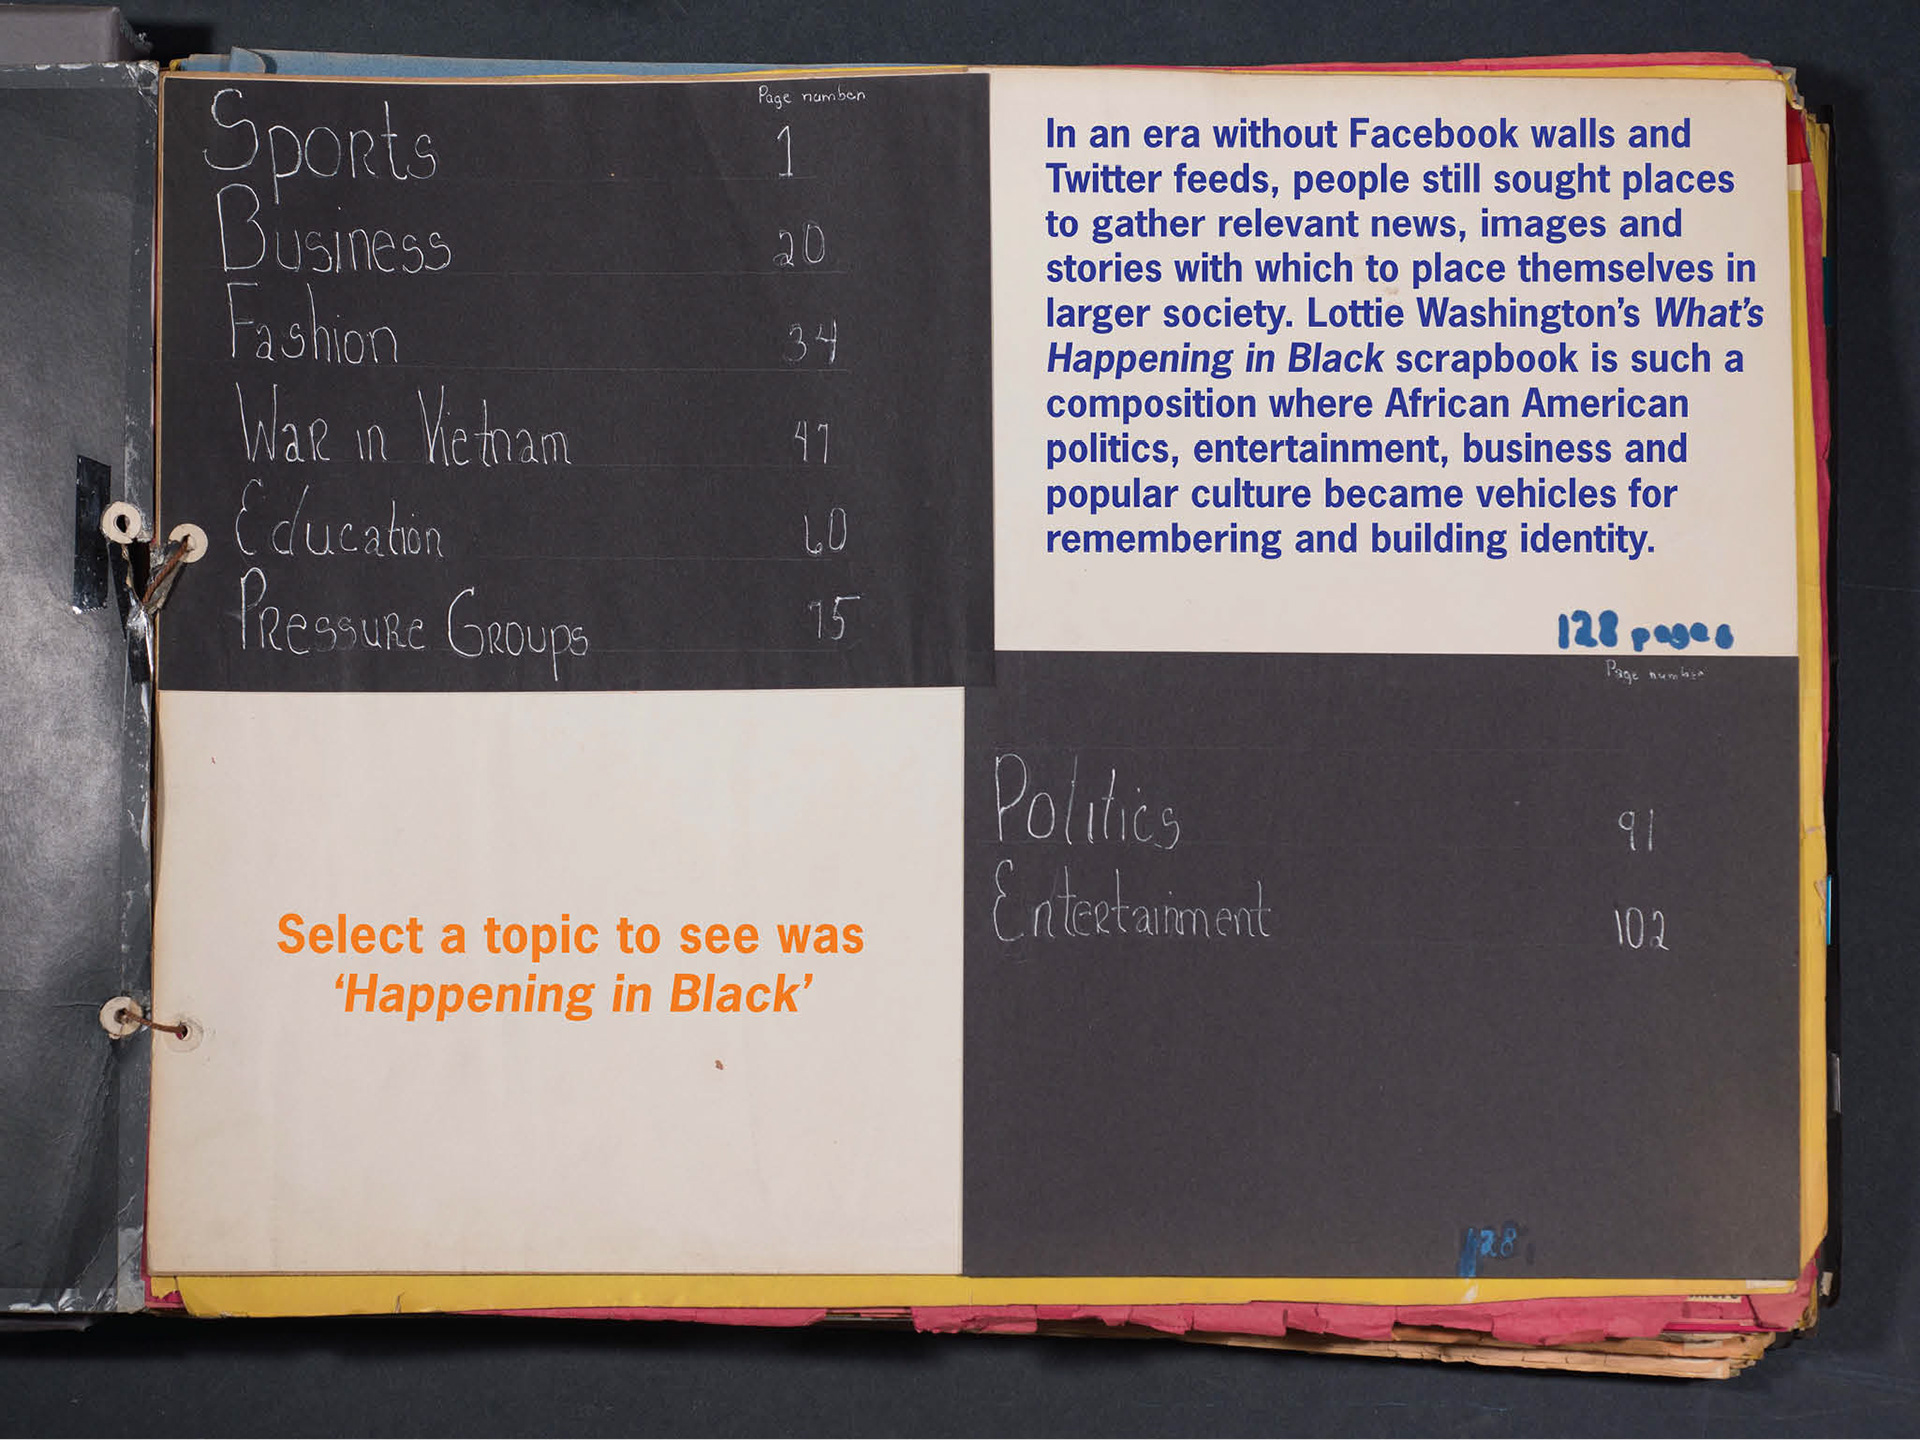 Page number
Sports 1
Business 20
Fashion 34
War in Vietnam 47
Education 60
Pressure Groups 75
In an era without Facebook walls and
Twitter feeds, people still sought places
to gather relevant news, images and
stories with which to place themselves in
larger society. Lottie Washington’s What’s
Happening in Black scrapbook is such a
composition where African American
politics, entertainment, business and
popular culture became vehicles for
remembering and building identity.
128 pages
Select a topic to see was
‘Happening in Black’
Page number
Politics 91
Entertainment 102
128